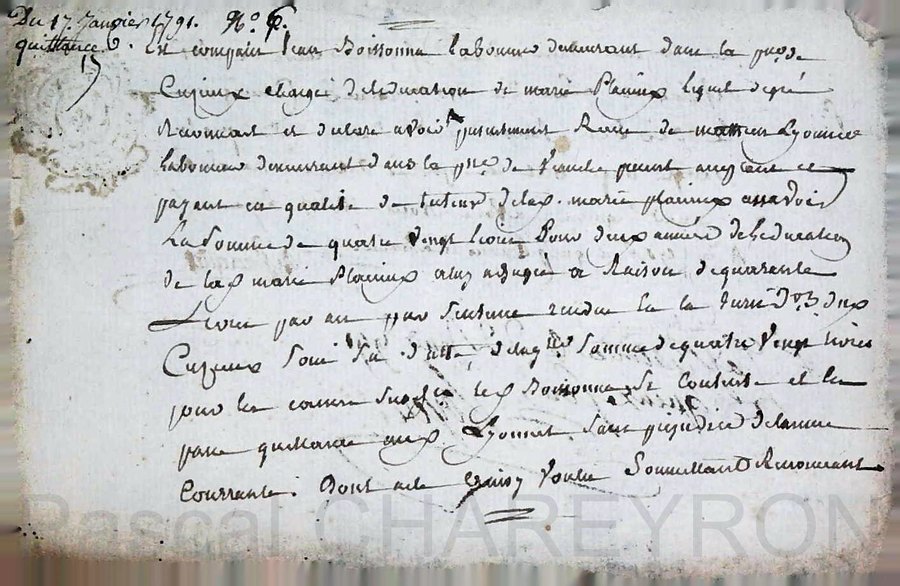 Du 17. Janvier 1791. N.o 6.
quittance 6.
15
Est comparu Jean Boissonna laboureur demeurant dans la p.sse de
Cujeux chargé de leducation de marie Plainix lequel de gré
Reconnait et declare avoir presentement Receu de Lyonnet
laboureur demeurant dans la p.sse de present acceptant et
payant en qualité de tuteur de lad. marie plainix assavoir
La Somme de quatre vingt livres Pour deux années de Leducation
de lad marie Plainix adjugée a Raison de quarante
Livres par an par Sentence rendue en la
Cujeux de laq.lle Somme de quatre Vingt livres
pour les causes led Boissonna Se Contente et en
passe quittance aud Lyonnet Sans prejudice de lannée
Courrante. Dont acte Voulu Soumettant Renonceant
Pascal CHAREYRON